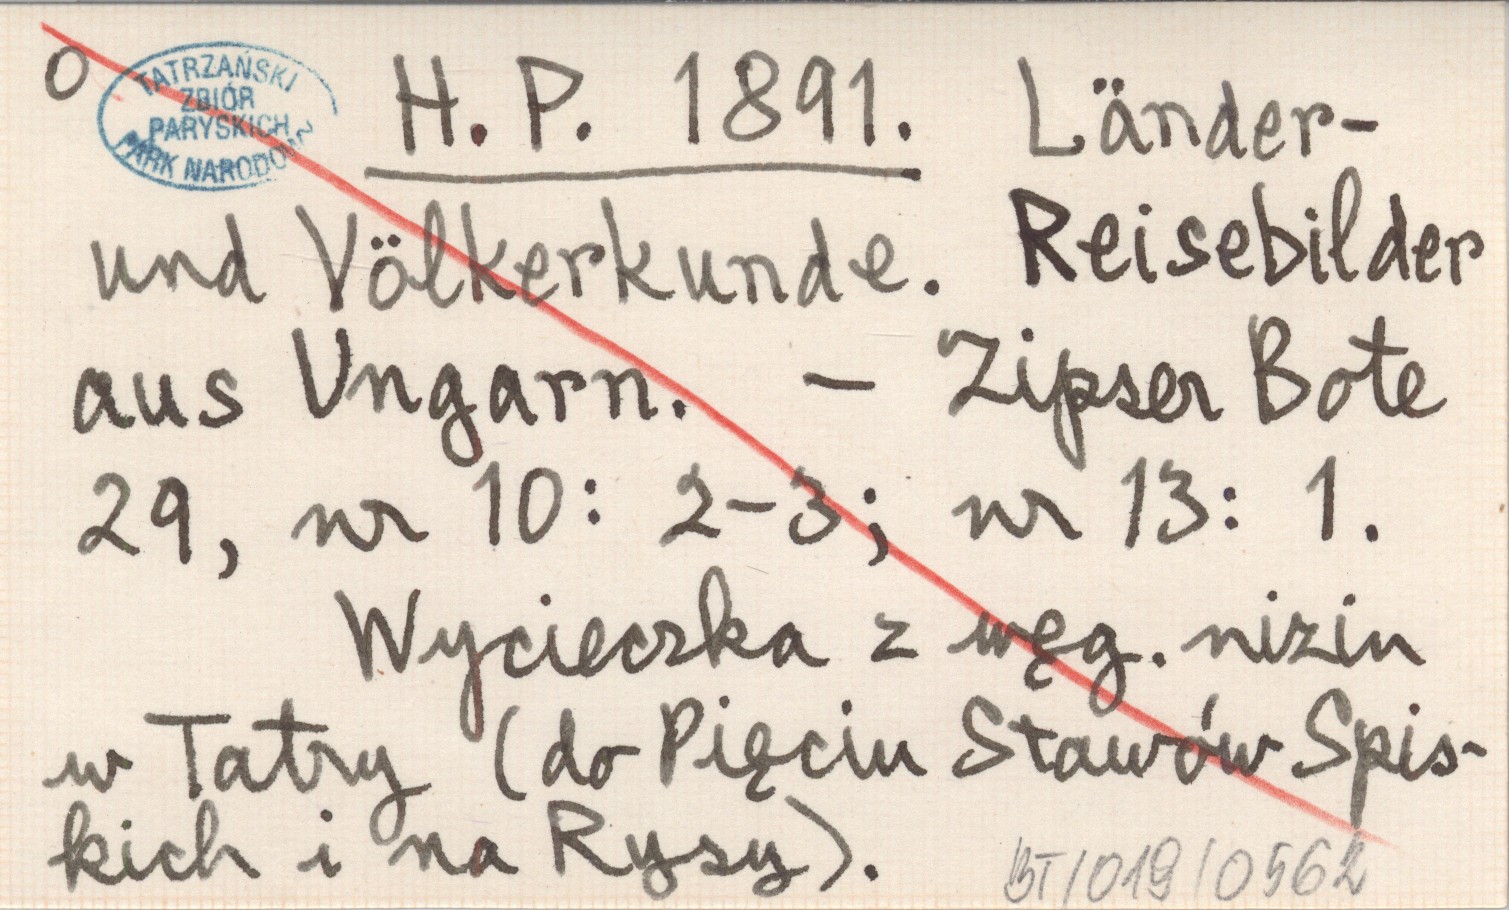 O
TATRZAŃSKI
ZBIÓR
PARYSKICH
PARK NARODOWY
H. P. 1891. Länder-
und Völkerkunde. Reisebilder
aus Ungarn. – Zipser Bote
29, nr 10: 2-3; nr 13: 1.
Wycieczka z węg. nizin
w Tatry (do Pięciu Stawów Spis-
kich i na Rysy).
BT/019/0562